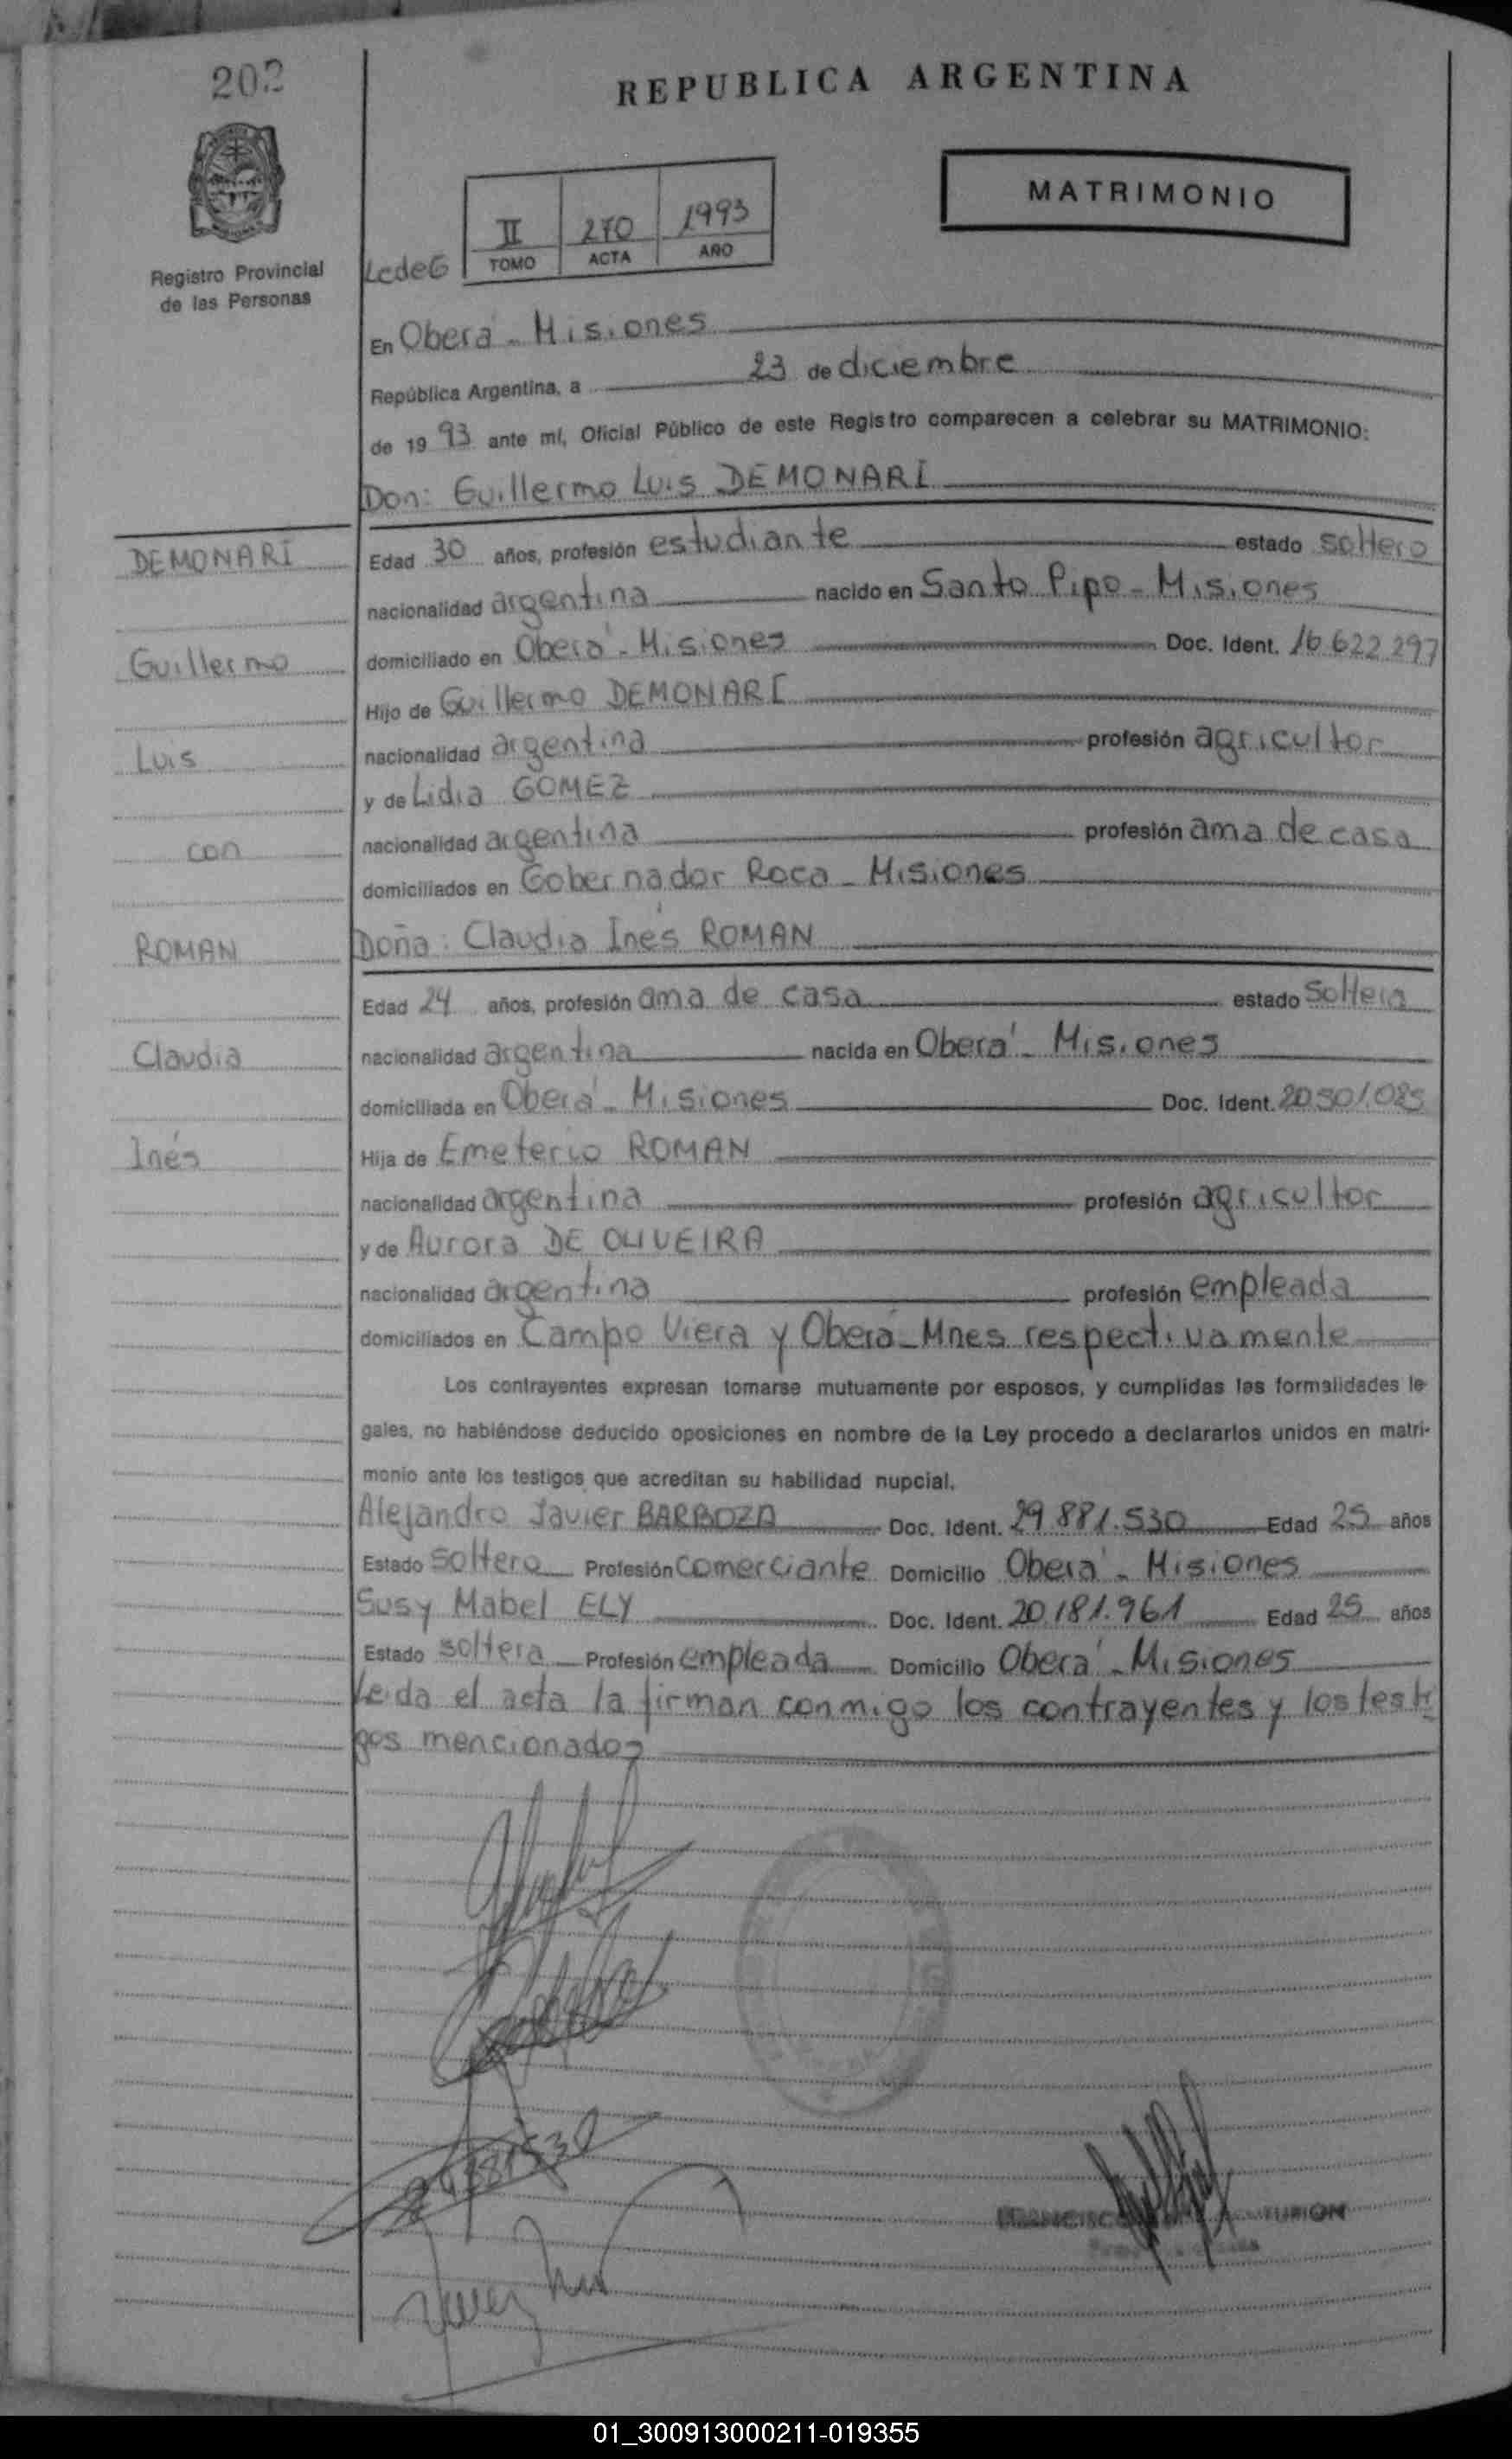 202
REPUBLICA ARGENTINA
MATRIMONIO
II 270 1993
TOMO ACTA AÑO
Registro Provincial
de las Personas
En Oberá - Misiones
República Argentina, a 23 de diciembre
de 19 93 ante mí, Oficial Público de este Registro comparecen a celebrar su MATRIMONIO:
Don: Guillermo Luis DEMONARI
DEMONARI
Edad 30 años, profesión estudiante estado soltero
nacionalidad argentina nacido en Santo Pipo - Misiones
Guillermo
domiciliado en Oberá - Misiones Doc. Ident. 16.622.297
Hijo de Guillermo DEMONARI
Luis
nacionalidad argentina profesión agricultor
y de Lidia GOMEZ
con
nacionalidad argentina profesión ama de casa
domiciliados en Gobernador Roca - Misiones
ROMAN
Doña: Claudia Inés ROMAN
Edad 24 años, profesión ama de casa estado Soltera
Claudia
nacionalidad argentina nacida en Oberá - Misiones
domiciliada en Oberá - Misiones Doc. Ident.
Inés
Hija de Emeterio ROMAN
nacionalidad argentina profesión agricultor
y de Aurora DE OLIVEIRA
nacionalidad argentina profesión empleada
domiciliados en Campo Viera y Oberá - Mnes respectivamente
Los contrayentes expresan tomarse mutuamente por esposos, y cumplidas las formalidades le-
gales, no habiéndose deducido oposiciones en nombre de la Ley procedo a declararlos unidos en matri-
monio ante los testigos que acreditan su habilidad nupcial.
Alejandro Javier BARBOZA Doc. Ident. 29.881.530 Edad 25 años
Estado soltero Profesión comerciante Domicilio Oberá - Misiones
Susy Mabel ELY Doc. Ident. 20.181.961 Edad 25 años
Estado soltera Profesión empleada Domicilio Oberá - Misiones
Leida el acta la firman conmigo los contrayentes y los testi
gos mencionados
FRANCISCO
01_300913000211-019355